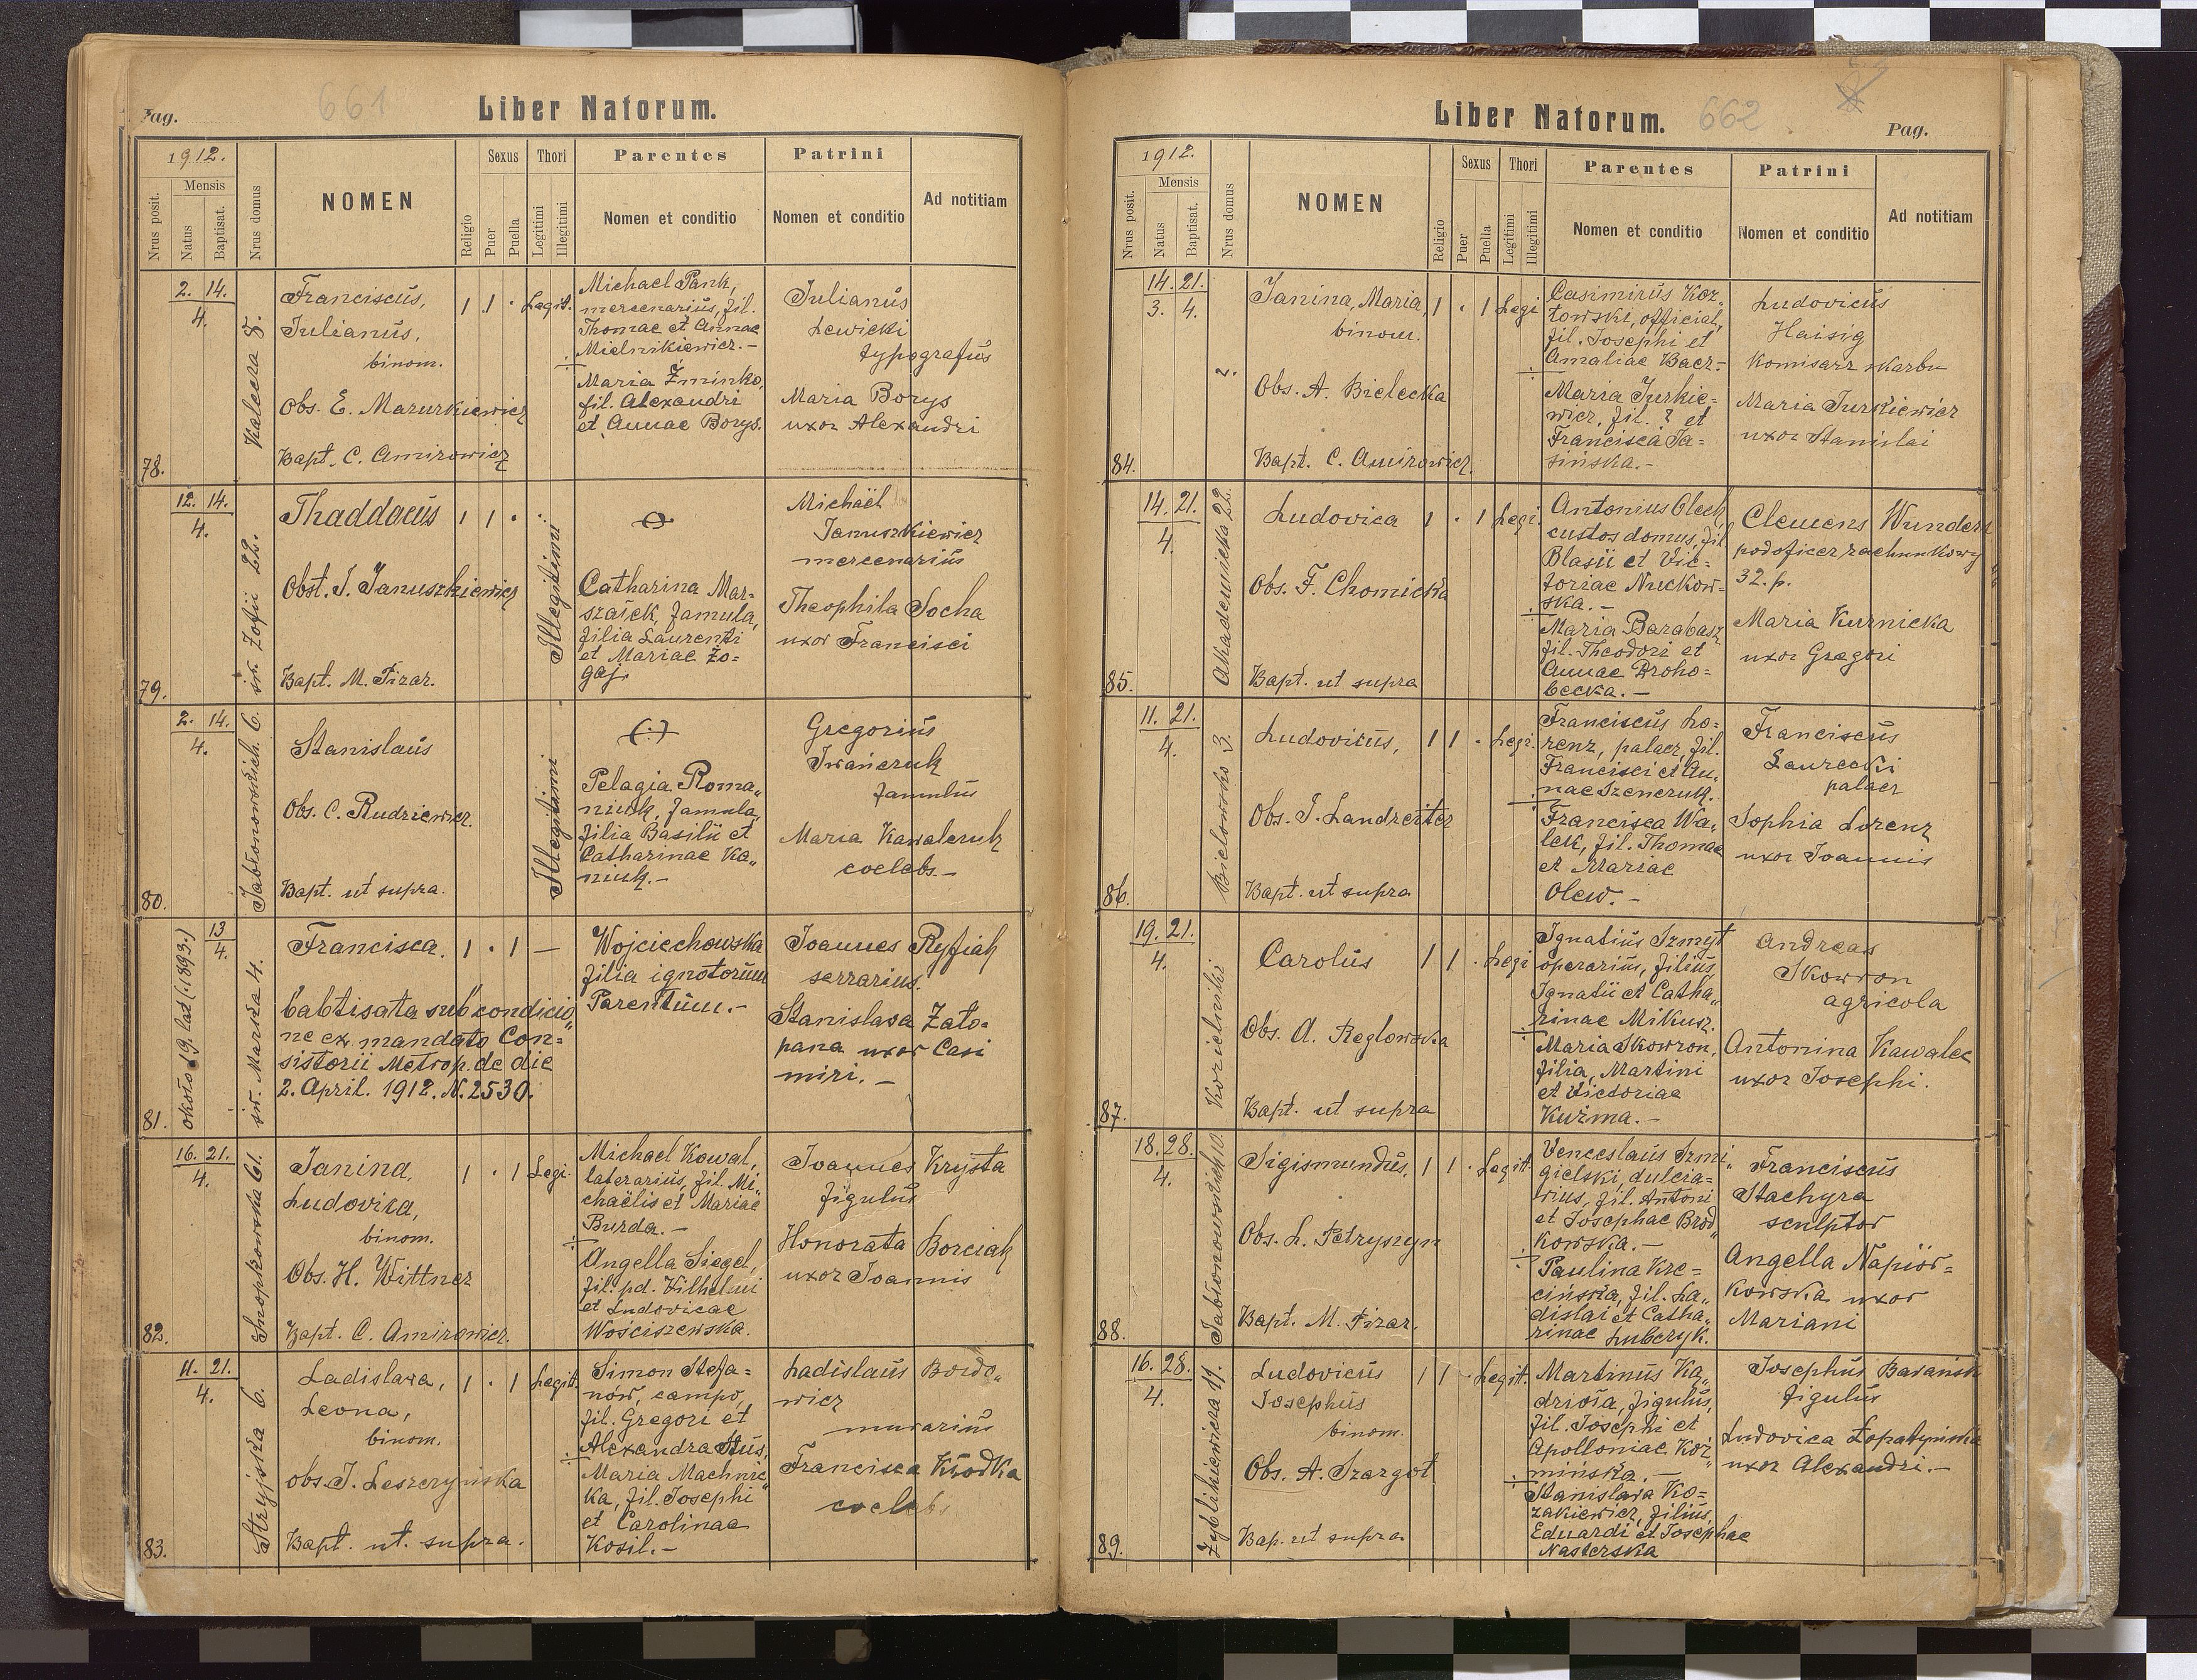 Pag.
661
Liber Natorum.
1912.
Nrus posit.
Mensis
Natus
Baptisat.
Nrus domus
NOMEN
Religio
Sexus
Puer
Puella
Thori
Legitimi
Illegitimi
Parentes
Nomen et conditio
Patrini
Nomen et conditio
Ad notitiam
78.
2. 14.
4.
Kaleera 8.
Franciscus,
Julianus,
binom.
Obs. E. Mazurkiewicz
Bapt. C. Amirowicz
1 1 · Legit.
Michael Pank,
mercenarius, fil.
Thomae et Annae
Mielnikiewicz.-
Maria Zminko,
fil. Alexandri
et Annae Borys.
Julianus
Lewicki
typografus
Maria Borys
uxor Alexandri
79.
12. 14.
4.
św. Zofii 22.
Thaddaeus
Obst. J. Januszkiewicz
Bapt. M. Pizar.
1 1 ·
Illegitimi
Catharina Mar-
szałek, famula,
filia Laurenti
et Mariae Zo=
gaj.
Michaël
Januszkiewicz
mercenarius
Theophila Socha
uxor Francisci
80.
2. 14.
4.
Jabłonowskich 6.
Stanislaus
Obs. C. Rudziewicz
Bapt. ut supra.
Illegitimi
(·)
Pelagia Roma„
niuk, famula,
filia Basilii et
Catharinae Ka„
niuk.-
Gregorius
Iwańczuk
famulus
Maria Kawalczuk
coelebs.-
81.
około 19. lat (1893.)
13
4.
św. Marka 4.
Francisca.
babtisata sub condicio„
ne ex mandato Con=
sistorii Metrop. de die
2. April. 1912. N. 2530.
1 · 1 —
Wojciechowska
filia ignotorum
Parentum.-
Joannes Ryfiak
serrarius.
Stanislava Zato-
pana uxor Casi
miri.-
82.
16. 21.
4.
Snopkowska 61.
Janina,
Ludovica,
binom.
Obs. H. Wittner
Bapt. C. Amirowicz.
1 · 1 Legi.
Michael Kowal,
laterarius, fil. Mi„
chaëlis et Mariae
Burda.-
Angella Siegel,
fil. pd. Vilhelmi
et Ludovicae
Wościszewska.
Joannes Krysta
figulus
Honorata Borciak
uxor Joannis
83.
11. 21.
4.
Stryjska 6.
Ladislava,
Leona,
binom.
Obs. J. Leszczyńska
Bapt. ut. supra.
1 · 1 Legit.
Simon Stefa=
nów, campo,
fil. Gregori et
Alexandra Stus,
Maria Machnic
ka, fil. Josephi
et Carolinae
Kosil.-
Ladislaus Bordo„
wicz
murarius
Francisca Kłodka
coelebs
Liber Natorum.
662
Pag.
1912.
Nrus posit.
Mensis
Natus
Baptisat.
Nrus domus
NOMEN
Religio
Sexus
Puer
Puella
Thori
Legitimi
Illegitimi
Parentes
Nomen et conditio
Patrini
Nomen et conditio
Ad notitiam
84.
14. 21.
3. 4.
?
Janina, Maria
binom.
Obs. A. Bielecka
Bapt. C. Amirowicz.
1 · 1 Legi
Casimirus Koz„
łowski, official,
fil. Josephi et
Amaliae Bacz-
Maria Jurkie=
wicz, fil. ? et
Francisca Ja=
sińska.-
Ludovicus
Haisig
Komisarz skarbu
Maria Jurkiewicz
uxor Stanislai
85.
14. 21.
4.
Akademicka 22.
Ludovica
Obs. F. Chomicka
Bapt. ut supra
1 · 1 Legi.
Antonius Olech,
custos domus, fil
Blasii et Vic-
toriae Nuckow-
ska.-
Maria Barabasz
fil. Theodori et
Annae Droho=
becka.-
Clemens Wunder
podoficer rachunkowy
32. p.
Maria Kurnicka
uxor Gregori
86.
11. 21.
4.
Bielowsko 3.
Ludovicus,
Obs. J. Landreiter
Bapt. ut supra
1 1 · Legi.
Franciscus Lo=
renz, palacz, fil.
Francisci et An„
nae Szenczuk.
Francisca Wa„
lek, fil. Thomae
et Mariae
Olew.-
Franciscus
Laurecki
palacz
Sophia Lorenz
uxor Joannis
87.
19. 21.
4.
Kozielniki
Carolus
Obs. A. Reglowska
Bapt. ut supra
1 1 · Legi
Ignatius Szmyt
operarius, filius,
Ignatii et Catha„
rinae Mikusz.
Maria Skowron,
filia, Martini
et Victoriae
Kuźma.-
Andreas
Skowron
agricola
Antonina Kawalec
uxor Josephi.
88.
18. 28.
4.
Jabłonowskich 10.
Sigismundus,
Obs. L. Petryszyn
Bapt. M. Pizar.
1 1 · Legit.
Venceslaus Szmi„
gielski, dulcia=
rius, fil. Antoni
et Josephae Brod„
kowska.-
Paulina Kre=
cińska, fil. La„
dislai et Catha„
rinae Luberyk.
Franciscus
Stachyra
sculptor
Angella Napiór=
kowska uxor
Mariani
89.
16. 28.
4.
Zyblikiewicza 11.
Ludovicus
Josephus
binom.
Obs. A. Szargot
Bap. ut supra
1 1 · Legit.
Martinus Ka„
drioła, figulus,
fil. Josephi et
Apolloniae Koź„
mińska.-
Stanislava Ko=
zakiewicz, filius,
Eduardi et Josephae
Nasterska
Josephus Basańsk
figulus
Ludovica Łopatyńska
uxor Alexandri.-